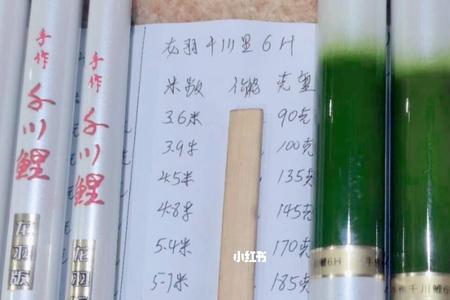 手作 千川鲤 龙羽版
手作 千川鲤 龙羽版
龙羽千川里 6H
米数 价格 克重
3.6米 90克
3.9米 100克
4.5米 135克
4.8米 145克
5.4米 170克
5.7米 185克
小红书
鲤6.H 手作
手作千川鲤6H